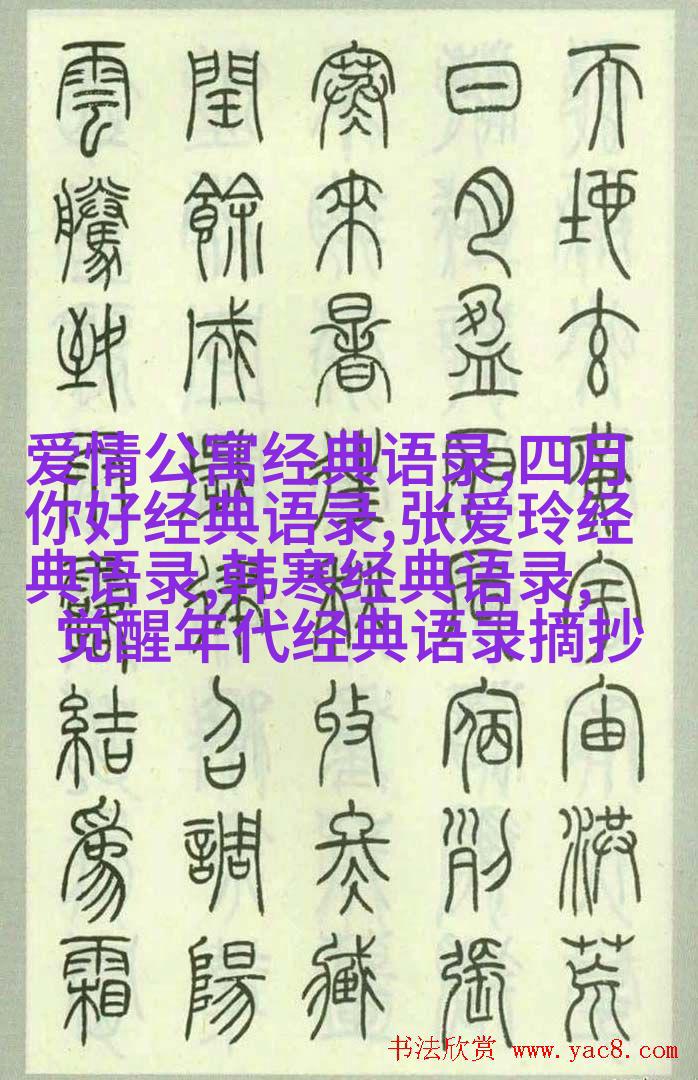 天地玄黃宇宙洪荒
日月盈昃辰宿列張
寒來暑往秋收冬藏
閏餘成歲律召調陽
雲騰致雨露結為霜
爱情公寓经典语录,四月
你好经典语录,张爱玲经
典语录,韩寒经典语录,
觉醒年代经典语录摘抄
书法欣赏 www.yac8.com